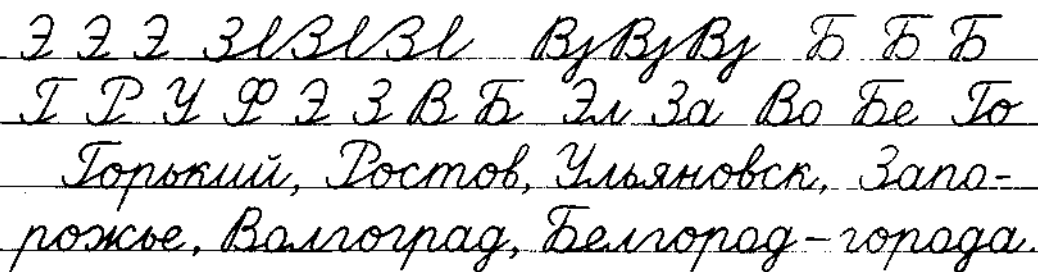 Э Э Э ЗlЗlЗl ВjВjВj Б Б Б
Г Р У Ф Э З В Б Эл За Во Бе Го
Горький, Ростов, Ульяновск, Запо-
рожье, Волгоград, Белгород – города.